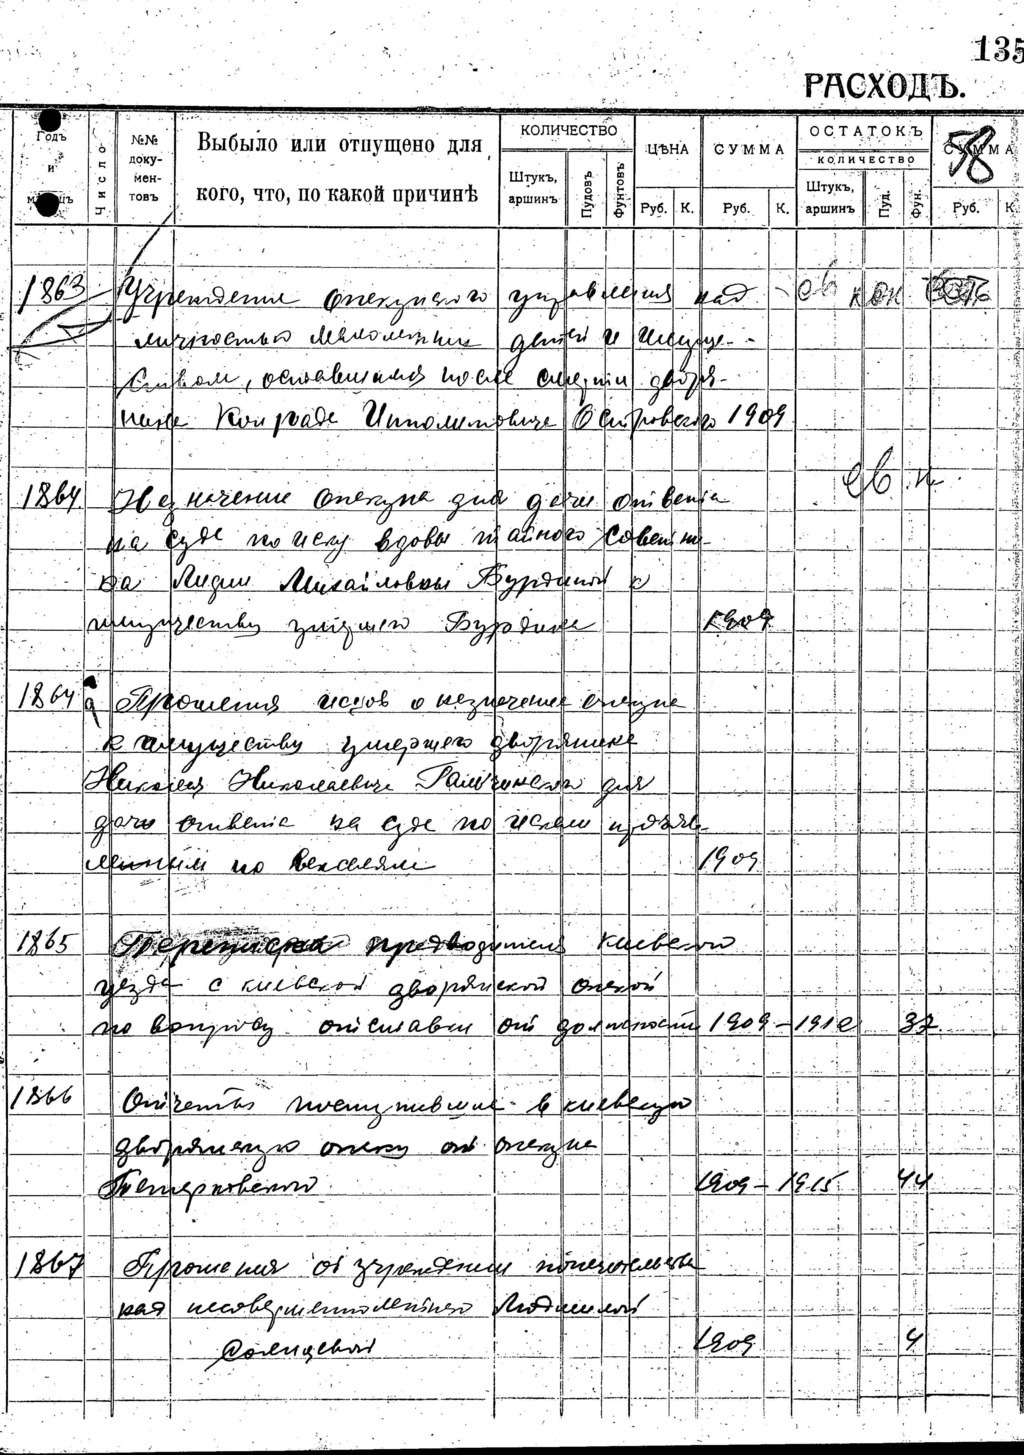 135
РАСХОДЪ.
Годъ и мѣсяцъ
Число
№№ доку- мен- товъ
Выбыло или отпущено для
кого, что, по какой причинѣ
КОЛИЧЕСТВО
Штукъ, аршинъ
Пудовъ
Фунтовъ
ЦѢНА
Руб. К.
СУММА
Руб. К.
ОСТАТОКЪ
КОЛИЧЕСТВО
Штукъ, аршинъ
Пуд.
Фун.
СУММА
Руб. К.
58
1863 Учреждение опекунского управления над
личностью малолетних детей и имуще-
ством, оставшимся после смерти дворя-
нина Конрада Ипполитовича Островского 1909
1864 Назначение опекуна для дачи ответа
на суде по иску вдовы тайного советни-
ка Лидии Михайловны Бурдиной к
имуществу умершего Бурдина 1909
1864 а Прошения истцов о назначение опекуна
к имуществу умершего дворянина
Николая Николаевича для
дачи ответа на суде по искам предъяв-
ленным по векселям 1909
1865 Переписка предводителя Киевского
уезда с киевской дворянской опекой
по вопросу отставки от должности 1909-1910 37
1866 Отчеты поступившие в киевскую
дворянскую опеку от опекуна
1909-1915 44
1867 Прошения об учреждении попечительства
над несовершеннолетнего Людмилой
Солнцевой 1909 4